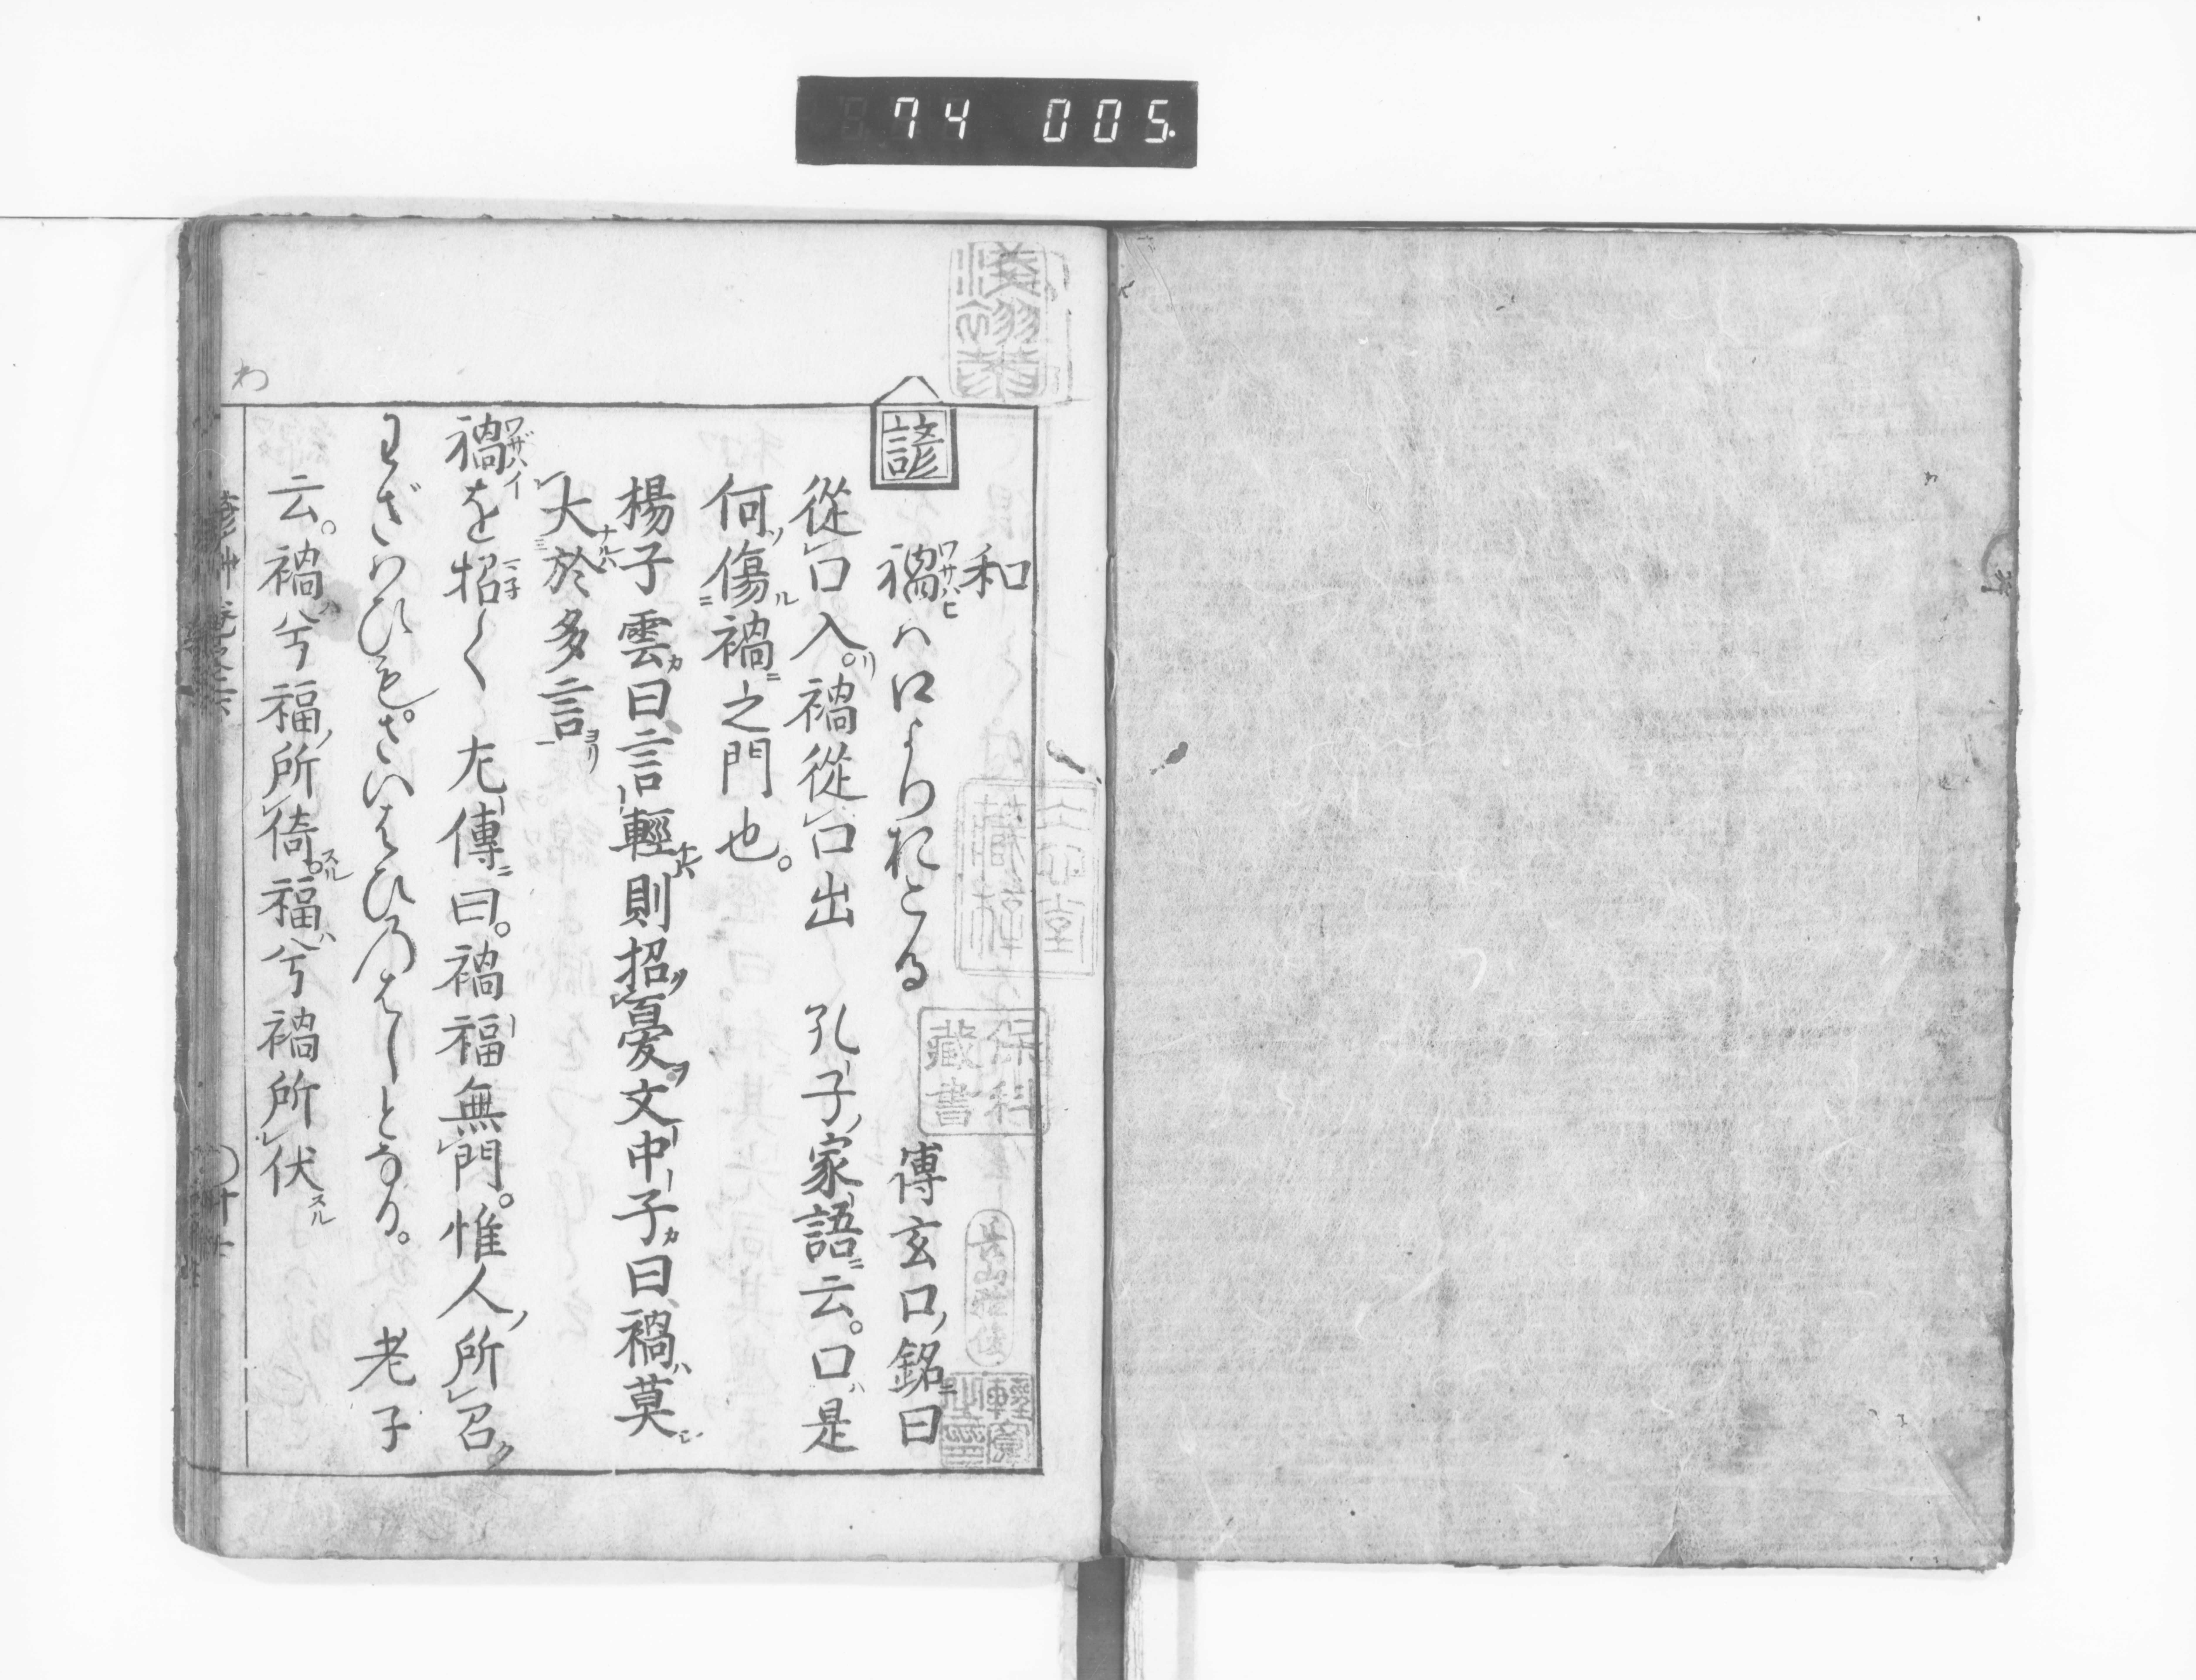 74 005
和
諺
禍ハ口よりおこる 傅玄口銘曰
從口入。禍從口出 孔子家語云。口是
何傷禍之門也。
楊子雲曰言輕則招憂文中子曰禍莫
大於多言
禍を招く 左傳曰。禍福無門。惟人所召
わざハひも。さいはひのはしとなる。 老子
云。禍兮福所倚。福兮禍所伏
わ
保科藏書